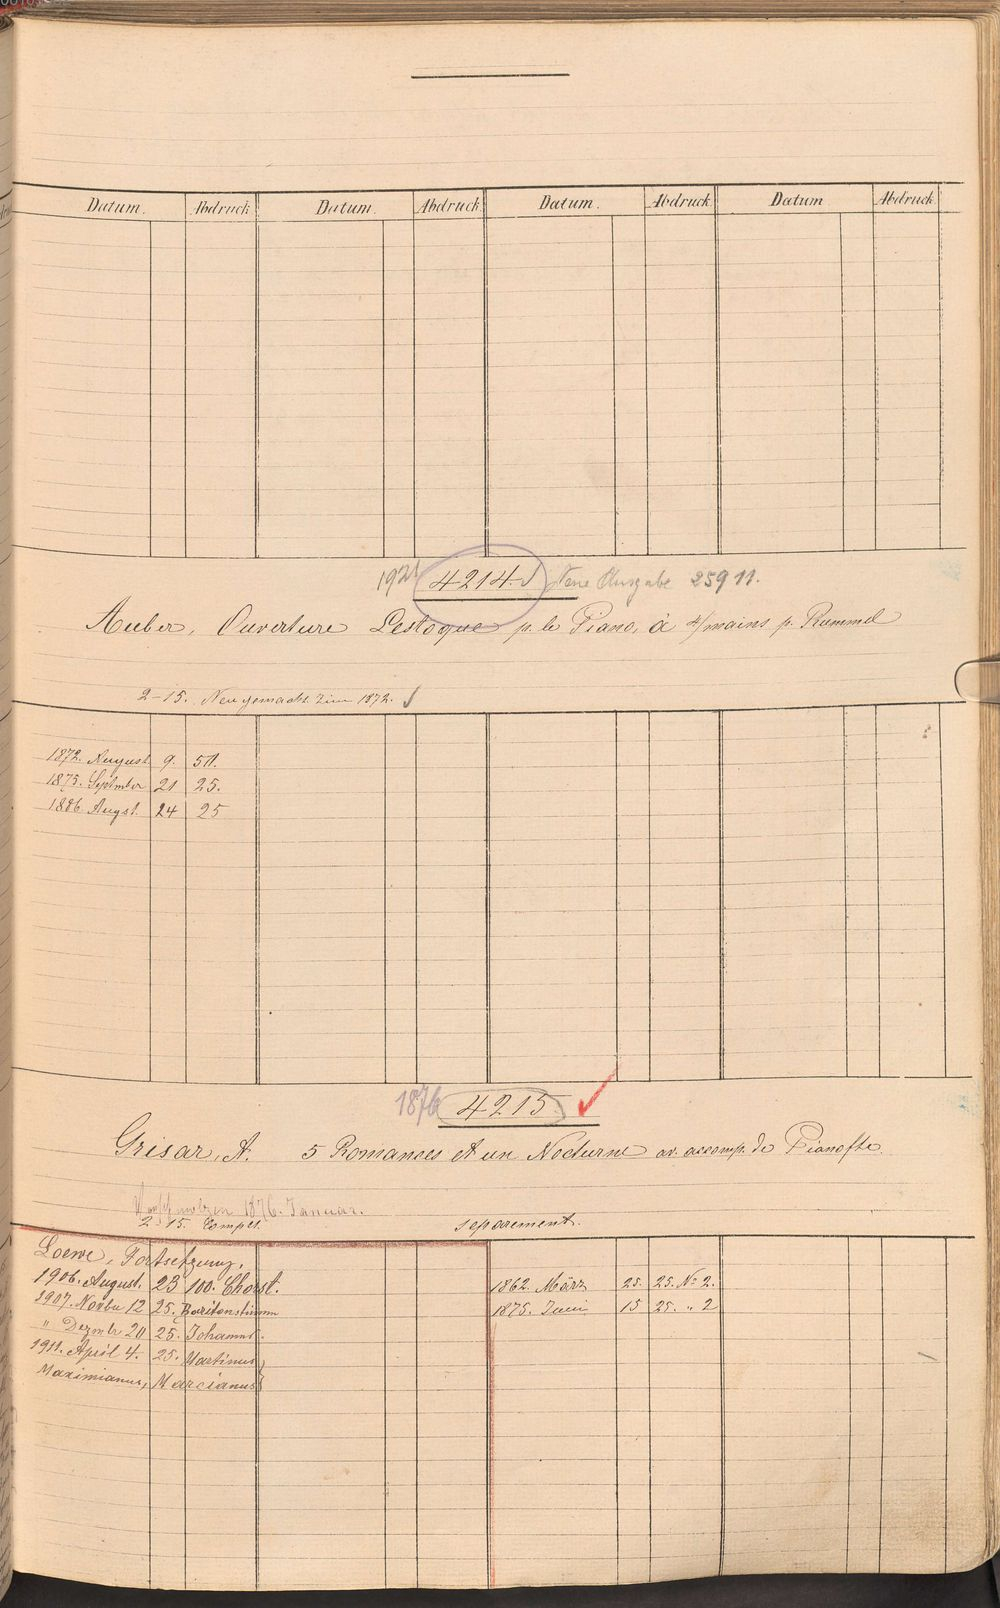 Datum. Abdruck Datum. Abdruck. Datum. Abdruck. Datum Abdruck
1921 4214 Neue Ausgabe 25911.
Auber, Ouverture Lestocque p. le Piano, à 4/mains p. Rummel
2-15. Neu gemacht Zinn 1872.
1872. August 9. 51.
1875. September 21 25.
1886 Augst. 24 25
1876 4215
Grisar, A. 5 Romances et un Nocturne av. accomp. de Pianofte.
1876. Januar.
2 15. Complt. separement.
Loewe, Fortsetzung,
1906. August. 23 100. Chorst.
1907. Novbr 12 25. Baritonstimm
" Dezmbr 20 25. Johannes.
1911. April 4. 25. Martinus
Maximianus, Marcianus
1862. März 25. 25. No 2.
1875. Juni 15 25. " 2